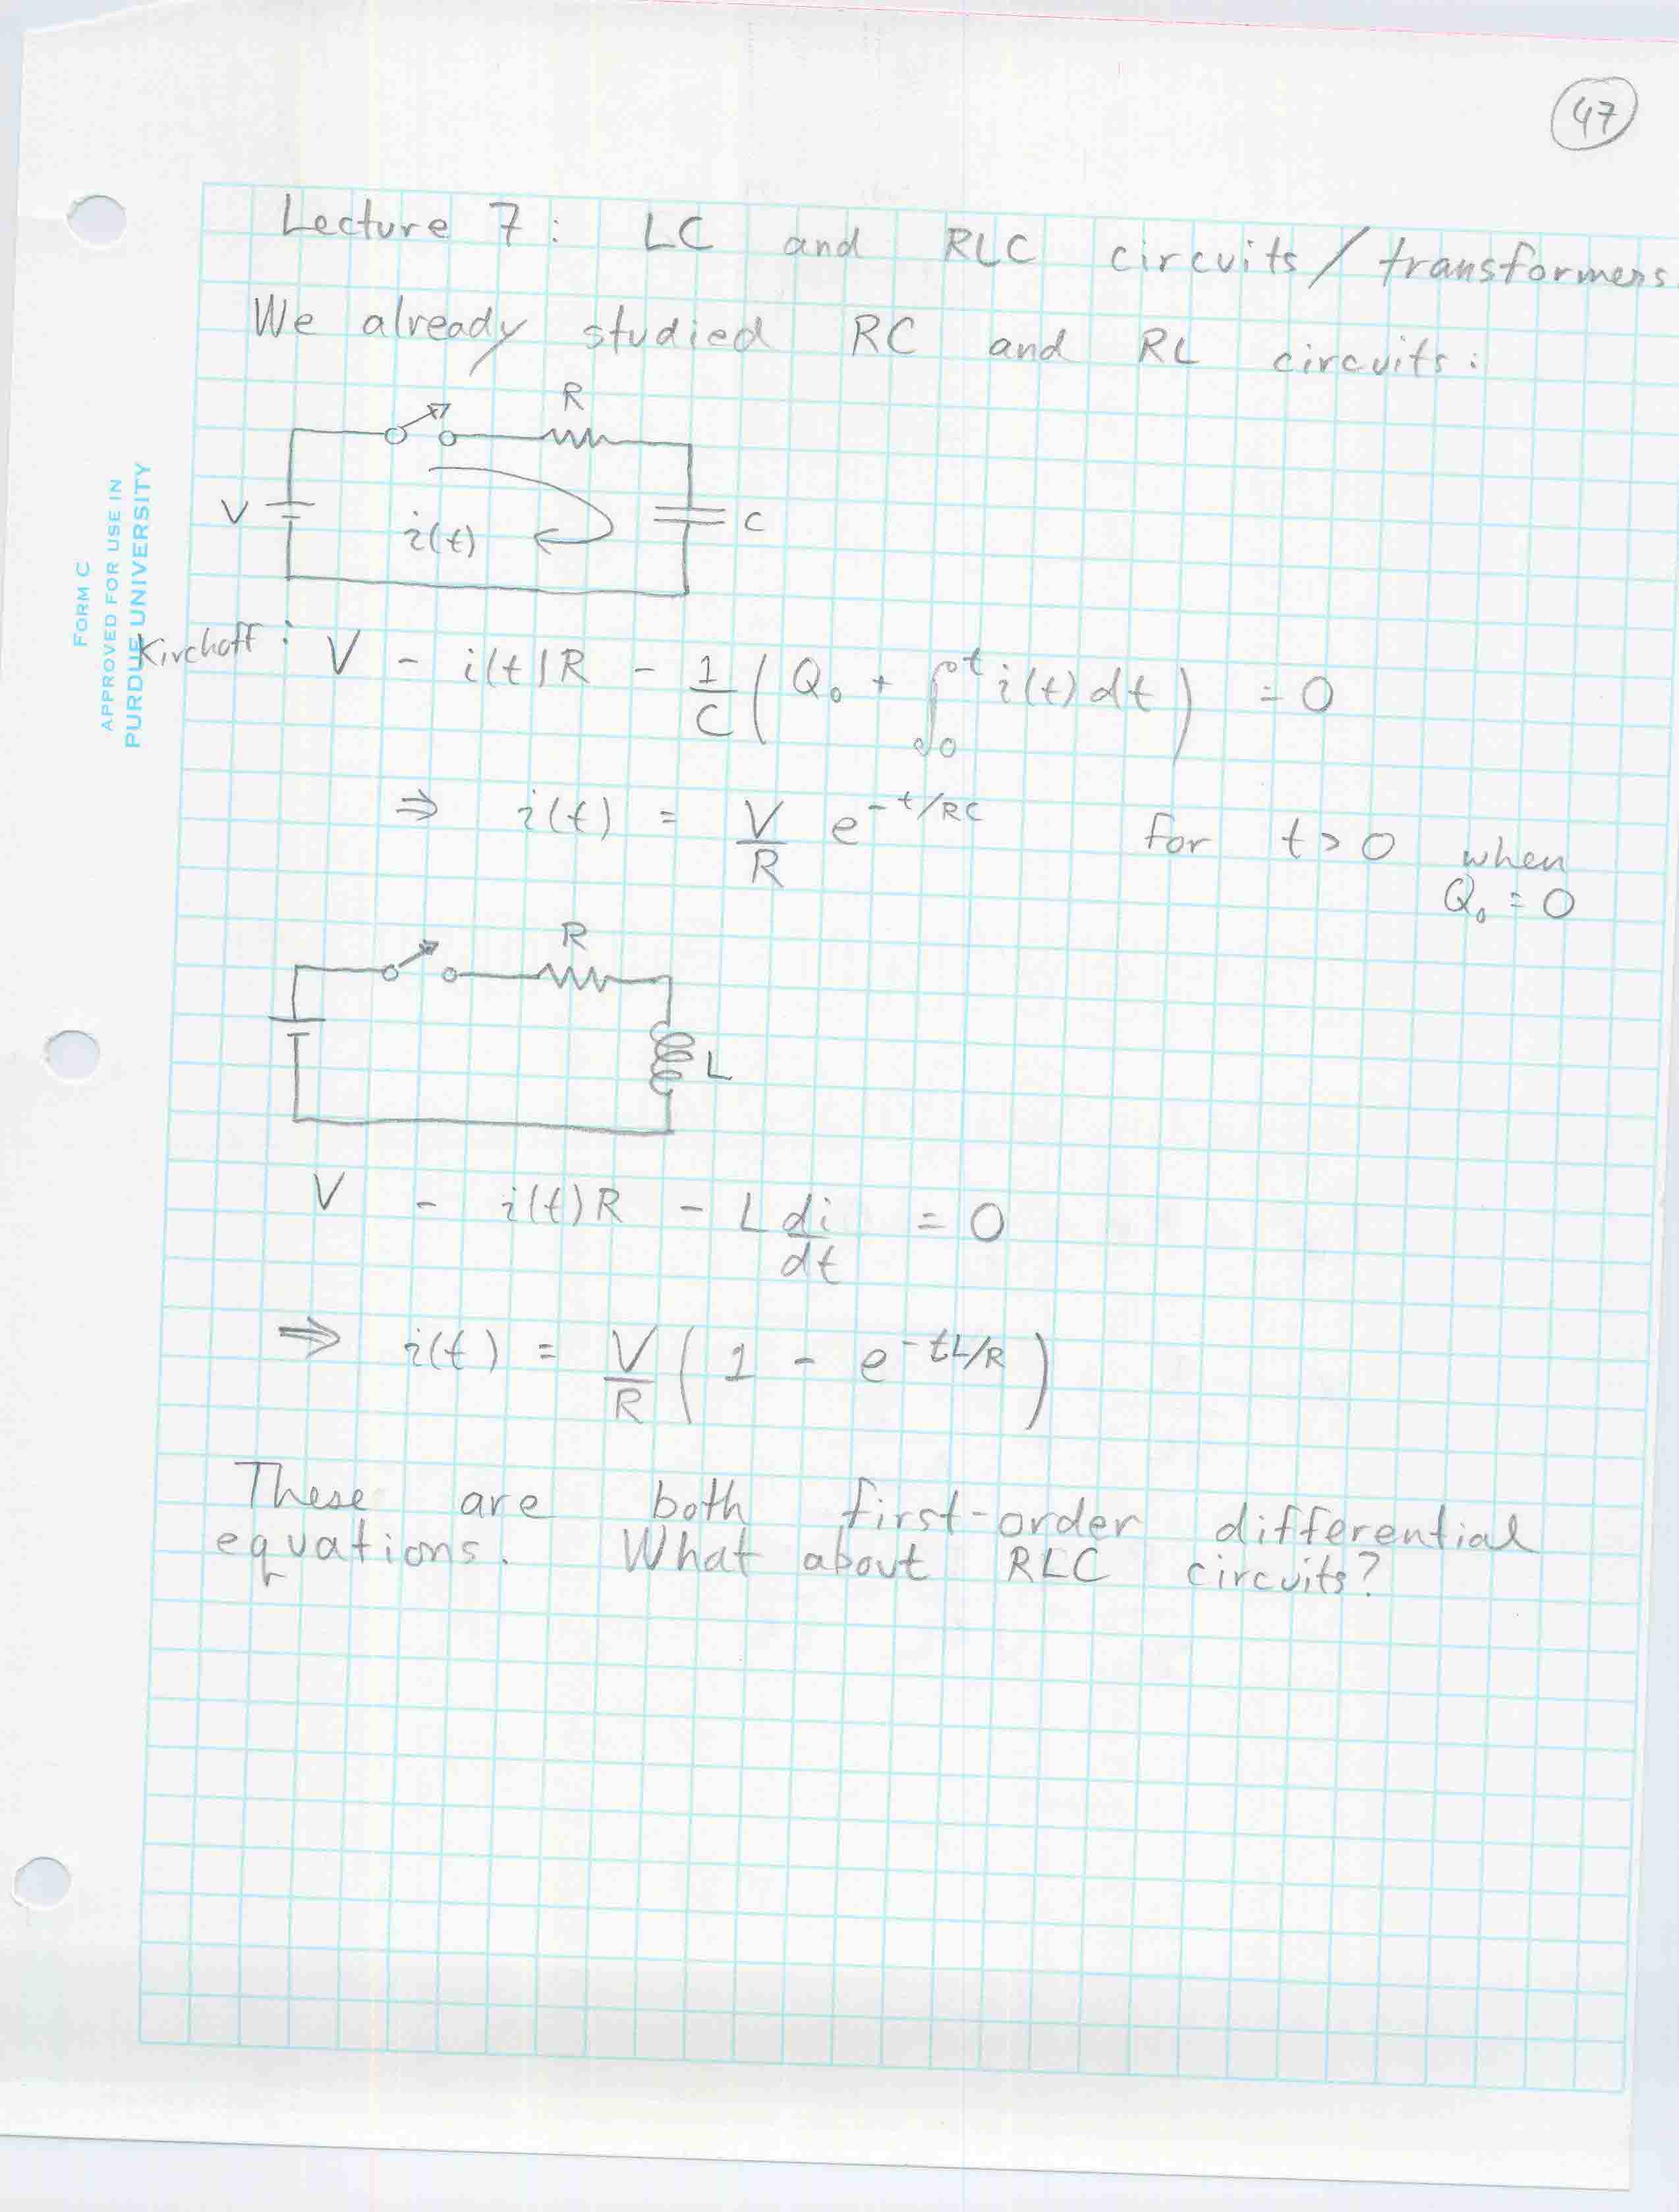 47
Lecture 7: LC and RLC circuits/transformers
We already studied RC and RL circuits:
R
V
i(t)
C
FORM C
APPROVED FOR USE IN
PURDUE UNIVERSITY
Kirchoff: V - i(t)R - 1/C ( Q₀ + ∫₀ᵗ i(t) dt ) = 0
⇒ i(t) = V/R e^{-t/RC} for t > 0 when
Q₀ = 0
R
L
V - i(t)R - L di/dt = 0
⇒ i(t) = V/R ( 1 - e^{-tL/R} )
These are both first-order differential
equations. What about RLC circuits?